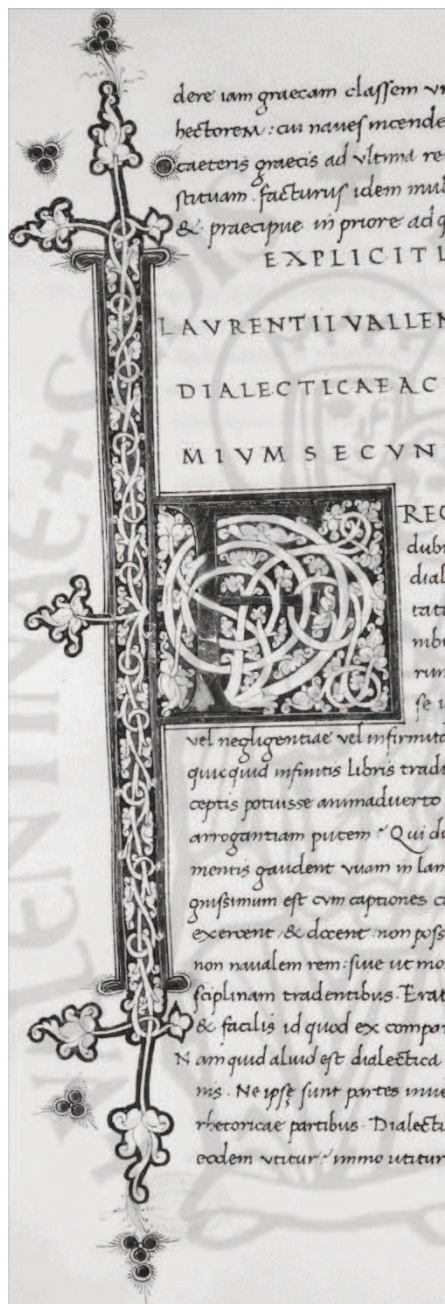 dere iam graecam classem vr
hectorem : cui naues incende
caeteris graecis ad vltima re
stituam. facturus idem mul
& praecipue in priore ad q
EXPLICIT L
LAVRENTII VALLEN
DIALECTICAE AC
MIVM SECVN
FREQ
dubi
dial
tati
nibu
rum
se i
vel negligentiae vel infirmita
quicquid infinitis libris trad
ceptis potuisse animaduerto
arrogantiam putem? Qui du
mentis gaudent vuam in lam
gnissimum est cvm captiones c
exercent & docent non poss
non naualem rem: siue ut mo
sciplinam tradentibus. Erat
& facilis id quod ex compor
Nam quid aliud est dialectica
nis. Ne ipsę sunt partes inue
rhetoricae partibus. Dialecti
eodem vtitur? immo utitur